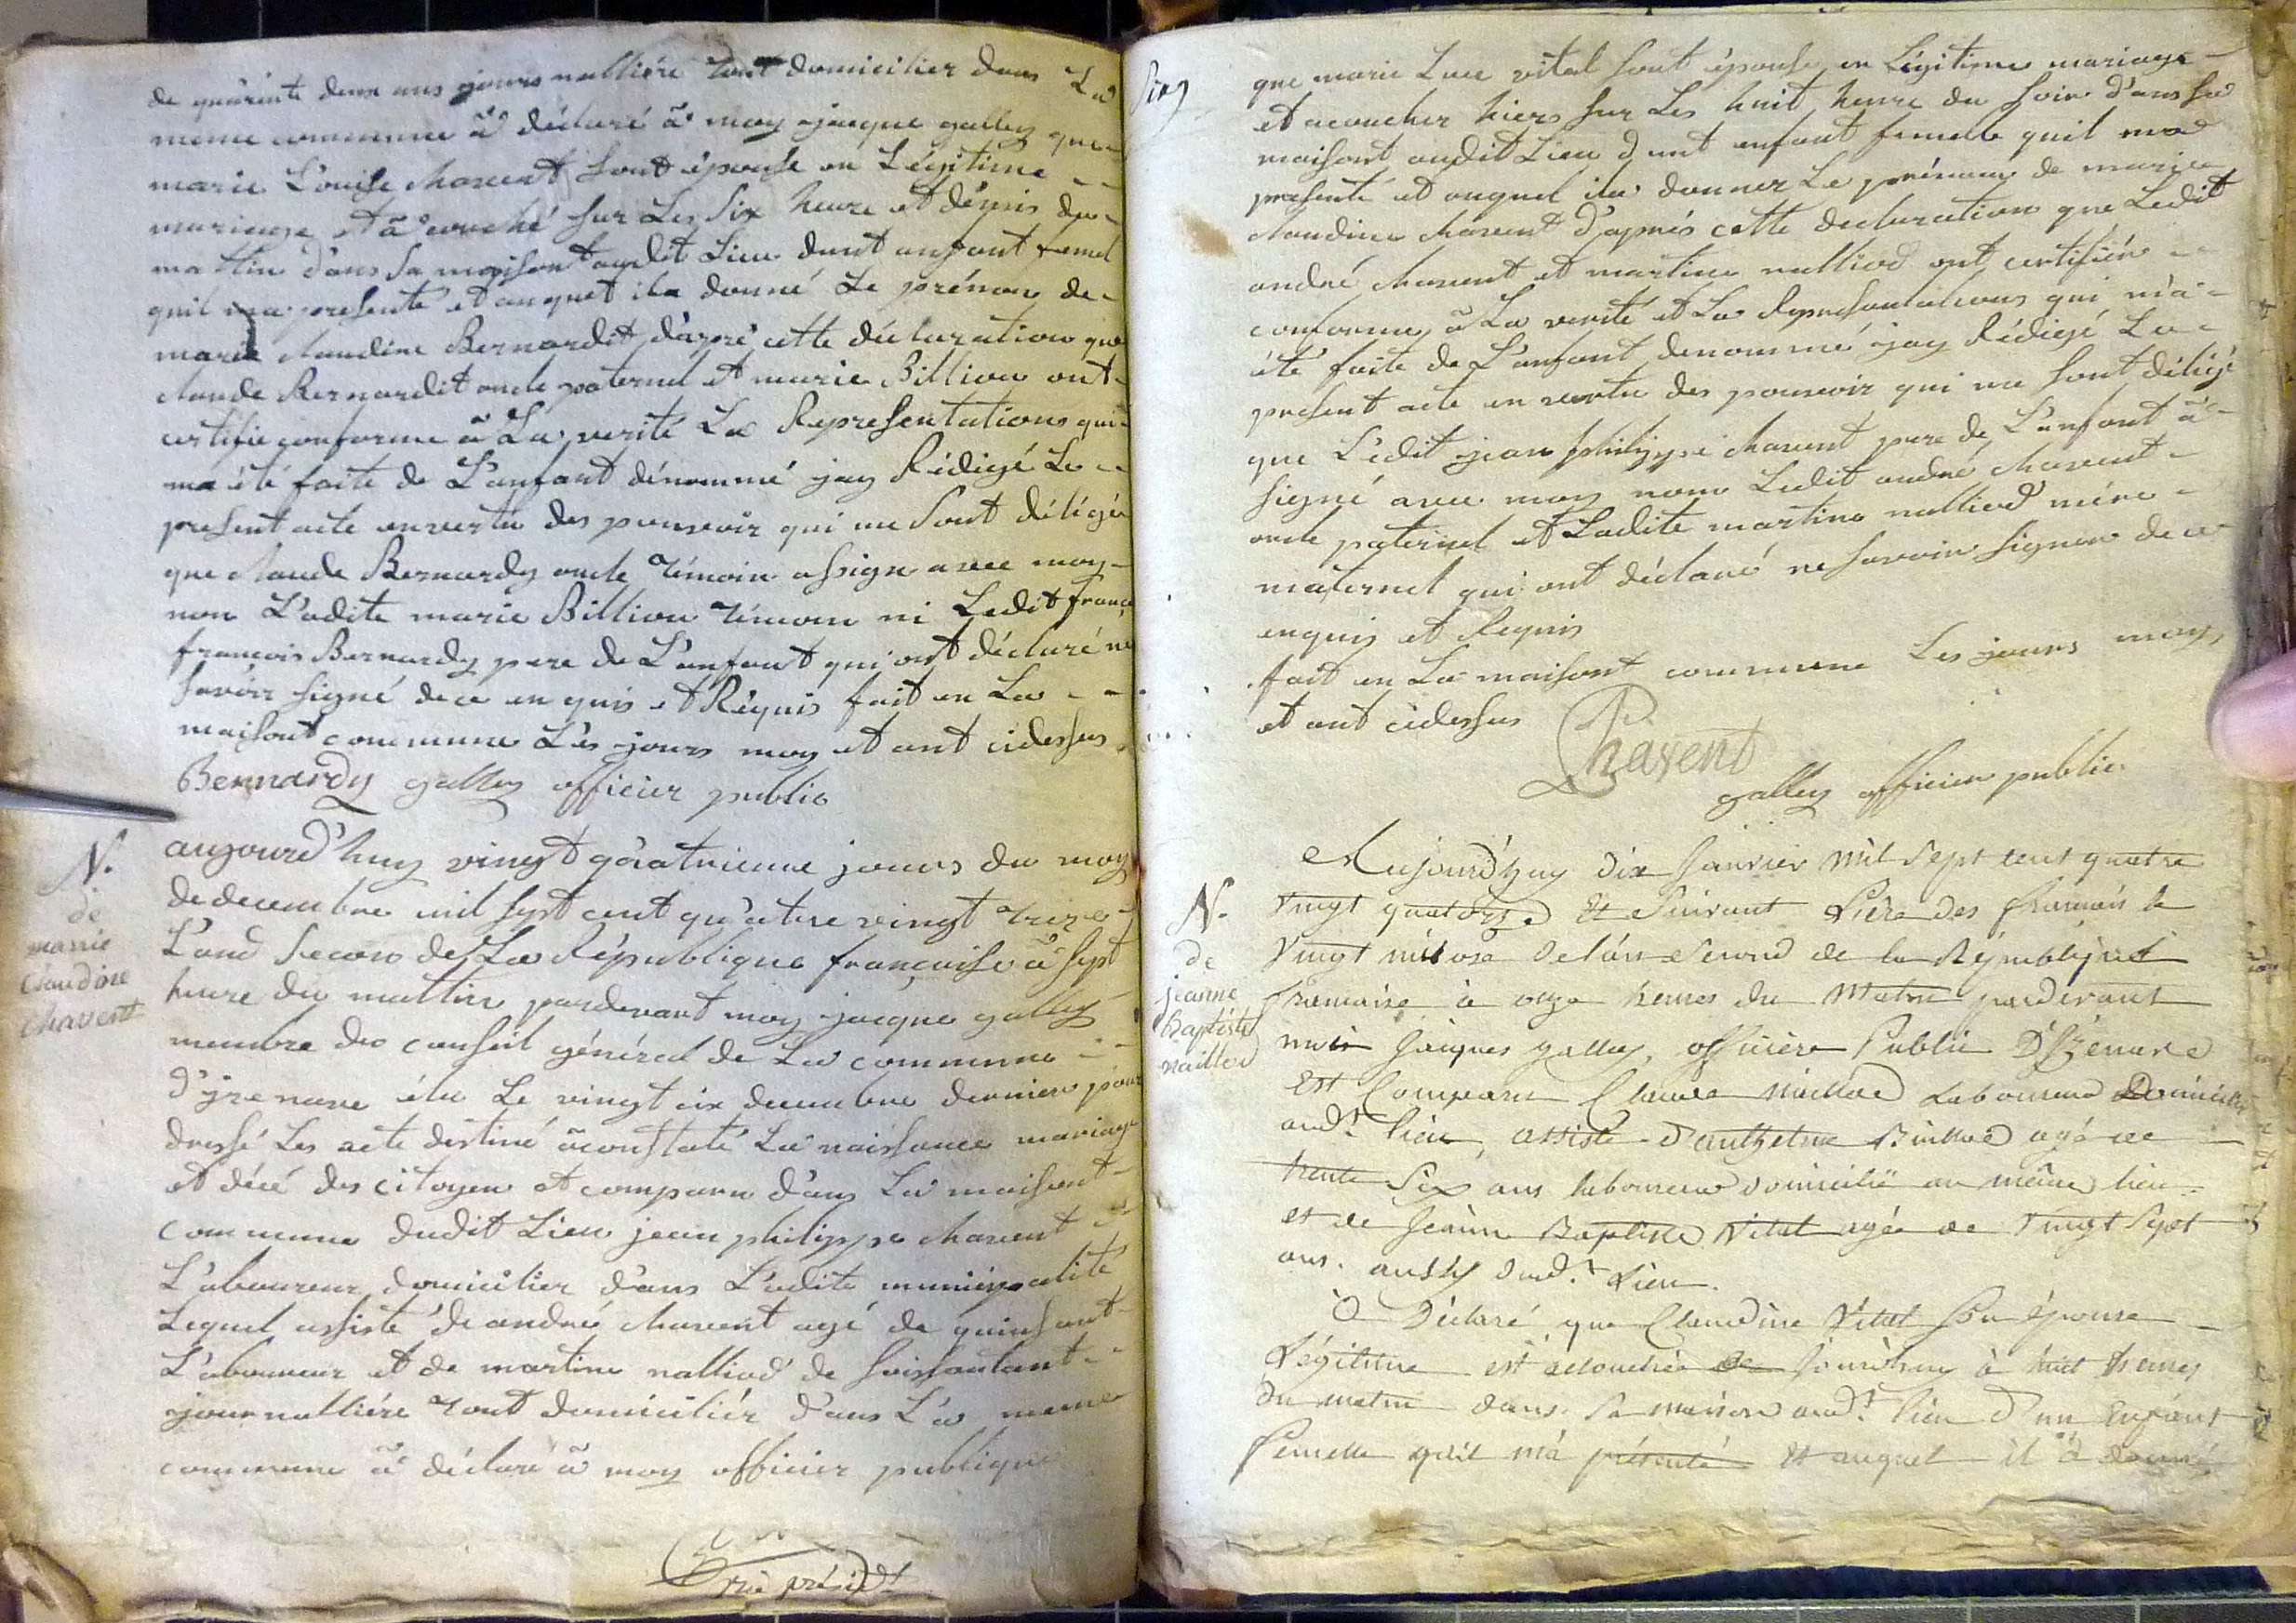 de quarente deux ans journalliére tout domicilier dans La
meme commune à déclaré à moy jacque galley que
marie Louise Chavent sont épouse en Légitime
mariage et à couché sur Les Six heure et démis du
mattin dans sa maisont audit Lieu dunt anfant femel
quil ma presenté et auquel ila donné Le prénom de
marie Claudine Bernardit d'apré cette déclaration que
Claude Bernardit oncle paternel et marie Billiou ont
certifie conforme à La verité La Representations qui
ma été faite de L'anfant dénommé jay Rédigé Le
present acte en vertu des pouvoir qui me sont déligé
que Claude Bernardy oncle témoin a signe avec moy
non L'adite marie Billiou témoin ni Ledit franç
francois Bernardy pere de L'anfant qui ont déclaré ne
savoir signé de ce en quis et Réquis fait en La
maisont commune Les jours moy et ant cidessus
Bernardy galley officier public
N.
de
marie
Claudine
Chavent
aujourd'huy vingt quatrieme jours du moy
de decembre mil sept cent quatre vingt treize
L'and Second de La République française à sept
heure du mattin pardevant moy jacque galley
membre du conseil général de La commune
d'yzenave élu Le vingt dix decembre dernier pour
dressé Les acte destiné àconstaté La naissance mariage
et décé des citoyen et comparu dans La maisont
commune dudit Lieu jean philippe Chavent
L'aboureur domicilier dans L'adite municipalité
Lequel assisté de andré Chavent agé de
L'aboureur et de martine nalliod de soissantant
journalliére tout domiciliér dans L'a meme
commune à déclaré à moy officier publique
que marie Luce vital sont épouse en Légitime mariage
et acoucher hiers sur Les huit heure du soir dans sa
maisont audit Lieu d'unt enfant femelle quil ma
presenté et auquel ila donner Le prénom de marie
Claudine Chavent d'aprés cette declaration que Ledit
andré Chavent et martine nalliod ont certifiér
conforme à La verité et La Representations qui m'a
été faite de L'anfant denommé jay Rédigé Le
present acte en vertu des pouvoir qui me sont déligé
que Ledit jean philippe Chavent pere de L'anfant à
signé avec moy nom Ledit andré Chavent
oncle paternel et Ladite martine nalliod mére
maternel qui ont déclaré ne savoir signer de ce
enquis et Requis
fait en La maisont commune Les jours moys
et ant cidessus
Chavent
galley officier public
N.
de
jeanne
baptiste
nalliod
Aujourd'huy dix Janvier mil sept cent quatre
vingt quatorze Et Suivant l'ière des francais le
vingt nivose de l'an Second de la République
francaise à onze heures du Matin pardevant
moi Jacques galley, officière Public D'Izenave
Est Comparu Claude nalliod Laboureur Domicilié
aud.t lieu, assisté d'anthelme nalliod agé de
trente Six ans laboureur domicilié au même lieu
et de Jeanne Baptiste Vital agée de vingt Sept
ans. aussy dud.t Lieu.
à Déclaré que Claudine Vital son épouse
Légitime est acouchée Jourd'huy à huit heures
du matin dans sa maison aud.t lieu d'un Enfant
femelle qu'il m'a présenté et auquel il à donné